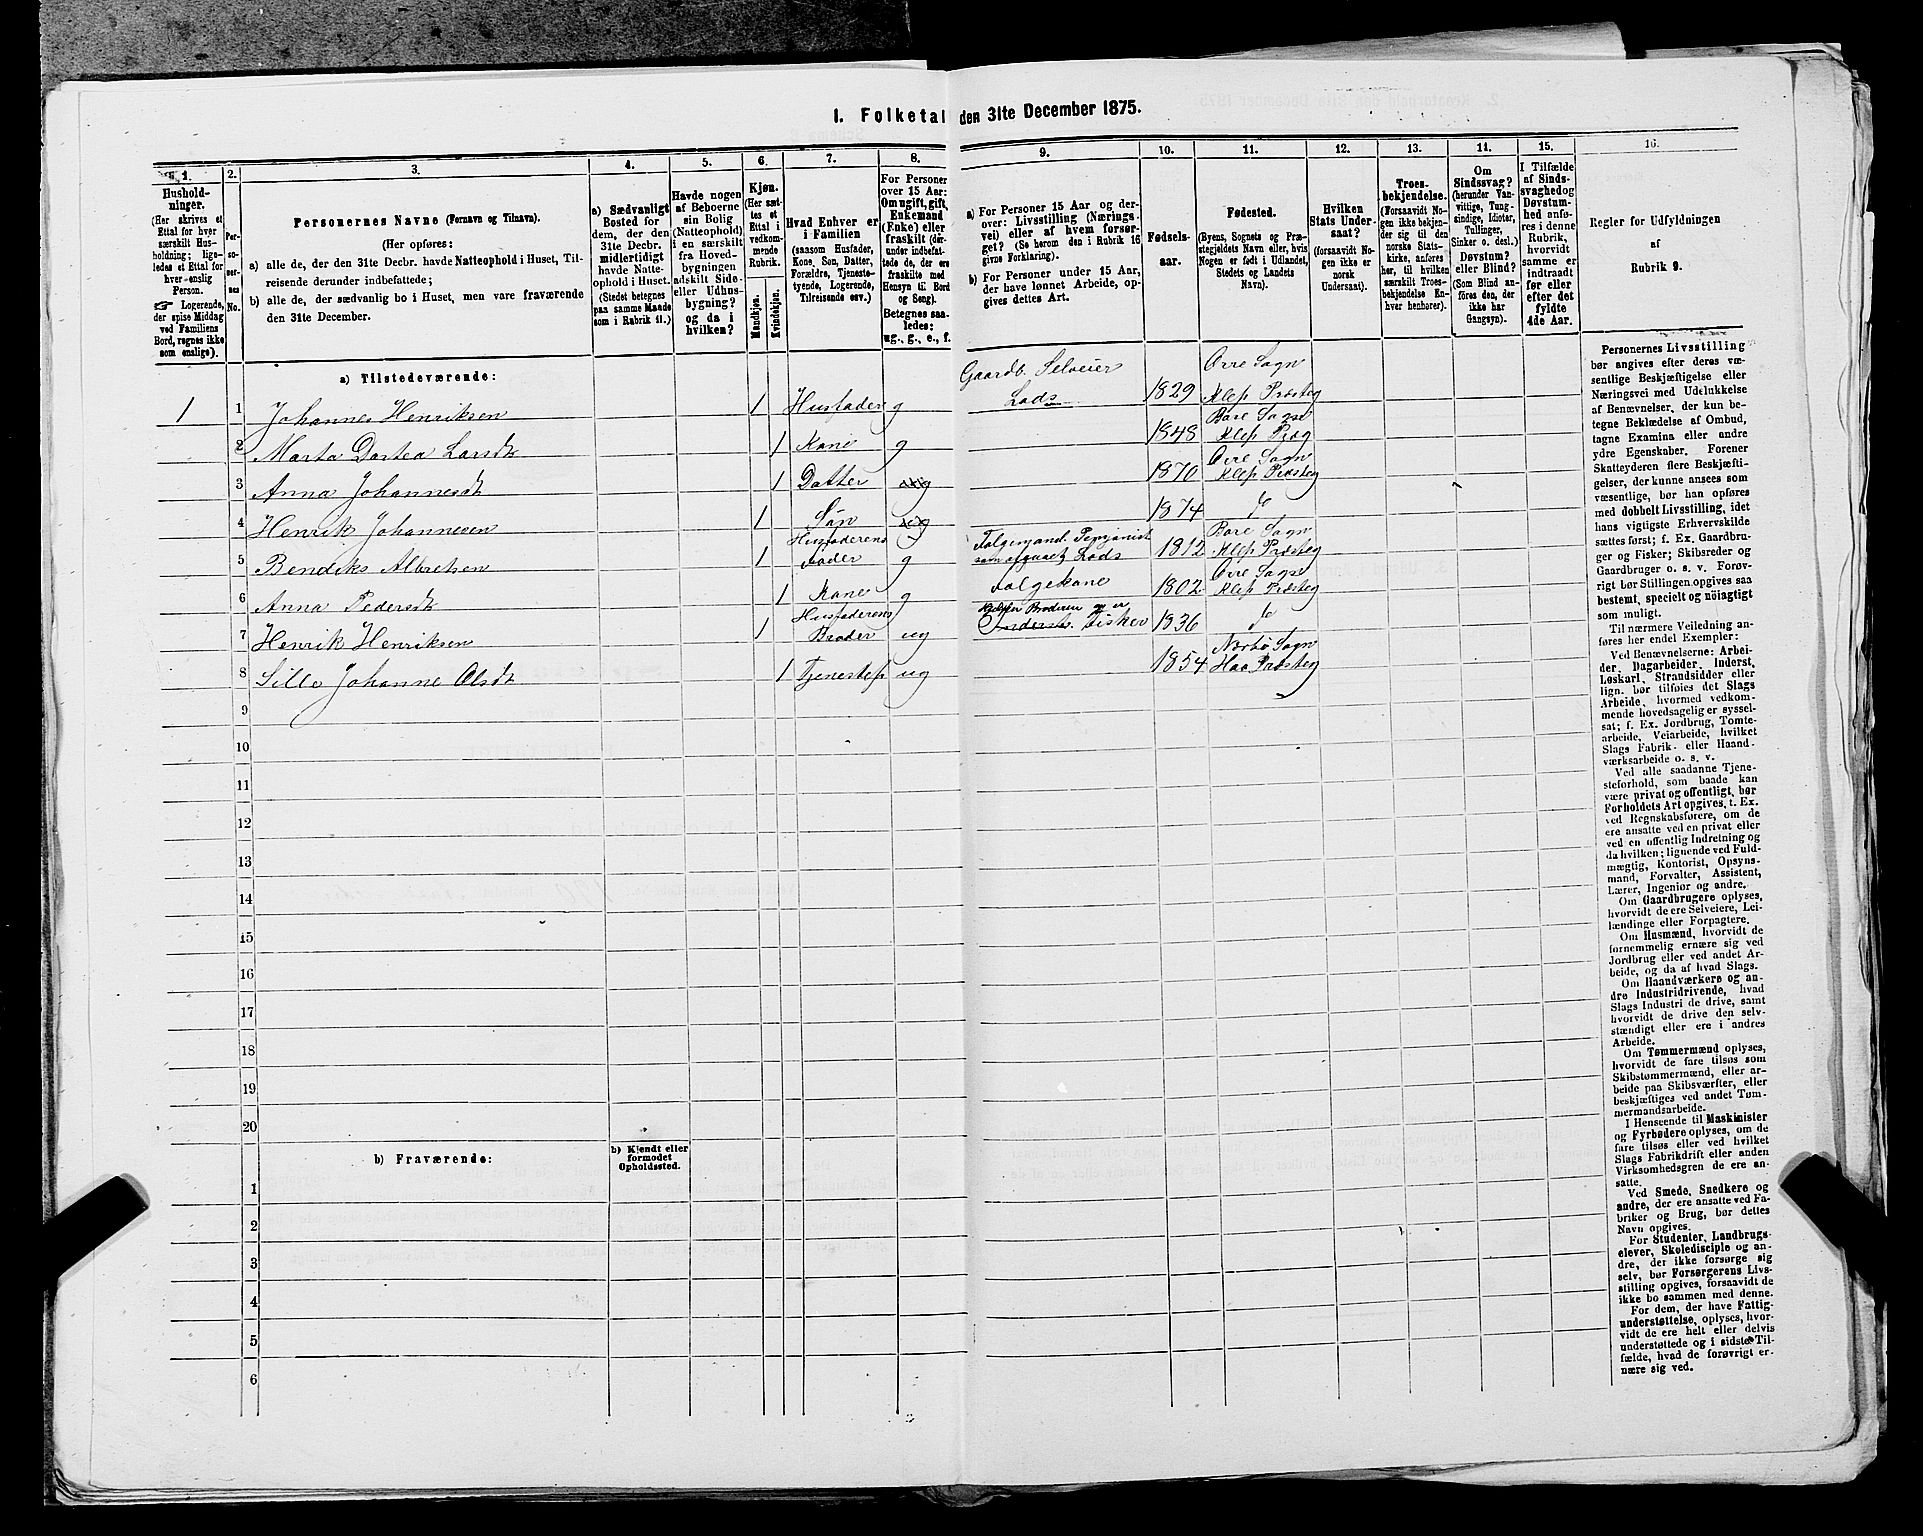 I. Folketal den 31te December 1875.
1. 2. 3. 4. 5. 6. 7. 8. 9. 10. 11. 12. 13. 14. 15. 16.
Hushold-
ninger.
(Her skrives et
Ettal for hver
særskilt Hus-
holdning; lige-
ledes et Ettal for
hver enslig
Person.
☞ Logerende,
der spise Middag
ved Familiens
Bord, regnes ikke
som enslige).
Per-
so-
ner-
nes
No.
Personernes Navne (Fornavn og Tilnavn).
(Her opføres:
a) alle de, der den 31te Decbr. havde Natteophold i Huset, Til-
reisende derunder indbefattede;
b) alle de, der sædvanlig bo i Huset, men vare fraværende
den 31te December.
a) Sædvanligt
Bosted for
dem, der den
31te Decbr.
midlertidigt
havde Natte-
ophold i Huset.
(Stedet betegnes
paa samme Maade
som i Rubrik 11.)
Havde nogen
af Beboerne
sin Bolig
(Natteophold)
i en særskilt
fra Hoved-
bygningen
adskilt Side-
eller Udhus-
bygning?
og da i
hvilken?
Kjøn.
(Her sæt-
tes et
Ettal i
vedkom-
mende
Rubrik.
Mandkjøn.
Kvindekjøn.
Hvad Enhver er
i Familien
(saasom Husfader,
Kone, Søn, Datter,
Forældre, Tjeneste-
tyende, Logerende,
Tilreisende osv.)
For Personer
over 15 Aar:
Om ugift, gift,
Enkemand
(Enke) eller
fraskilt (der-
under indbefat-
tede de, der ere
fraskilte med
Hensyn til Bord
og Seng).
Betegnes saa-
ledes:
ug., g., e., f.
a) For Personer 15 Aar og der-
over: Livsstilling (Nærings-
vei) eller af hvem forsør-
get? (Se herom den i Rubrik 16
givne Forklaring).
b) For Personer under 15 Aar,
der have lønnet Arbeide, op-
gives dettes Art.
Fødsels-
aar.
Fødested.
(Byens, Sognets og Præ-
stegjeldets Navn eller, hvis
Nogen er født i Udlandet,
Stedets og Landets
Navn).
Hvilken
Stats Under-
saat?
(forsaavidt No-
gen ikke er
norsk
Undersaat).
Troes-
bekjendelse.
(Forsaavidt No-
gen ikke bekjen-
der sig til den
norske Stats-
kirke, anføres
her, til hvilken
særskilt Troes-
bekjendelse En-
hver henhører).
Om
Sindssvag?
(herunder Van-
vittige, Tung-
sindige, Idioter,
Tullinger,
Sinker o. desl.)
Døvstum?
eller Blind?
(Som Blind an-
føres den, der
ikke har
Gangsyn).
I Tilfælde
af Sinds-
svaghed og
Døvstum-
hed anfø-
res i denne
Rubrik,
hvorvidt
samme er
indtraadt
før eller
efter det
fyldte
4de Aar.
Regler for Udfyldningen
af
Rubrik 9.
a) Tilstedeværende:
1 1 Johannes Henriksen 1 Husfader g Gaardb. Selveier Lods 1829 Orre Sogn Klep Præsteg
2 Marta Dortea Larsdt 1 Kone g 1848 Bore Sogn Klep Præg
3 Anna Johannesdt 1 Datter 1870 Orre Sogn Klep Præsteg
4 Henrik Johannesen 1 Søn 1874 do
5 Bendiks Albretsen 1 Husfaderens Fader g Folgemand. Pensjonist som afgaaet Lods 1812 Bore Sogn Klep Præsteg
6 Anna Pedersdt 1 Kone g Folgekone 1802 Orre Sogn Klep Præsteg
7 Henrik Henriksen 1 Husfaderens Broder ug Hjelper Broderen og er Fisker 1836 do
8 Sille Johanne Olsdt 1 Tjenestep ug 1854 Nærbø Sogn Haa Præsteg
9
10
11
12
13
14
15
16
17
18
19
20
b) Fraværende:
b) Kjendt eller
formodet
Opholdssted.
1
2
3
4
5
6
Personernes Livsstilling
bør angives efter deres væ-
sentlige Beskjæftigelse eller
Næringsvei med Udelukkelse
af Benævnelser, der kun be-
tegne Beklædelse af Ombud,
tagne Examina eller andre
ydre Egenskaber. Forener
Skatteyderen flere Beskjæfti-
gelser, der kunne ansees som
væsentlige, bør han opføres
med dobbelt Livsstilling, idet
hans vigtigste Erhvervskilde
sættes først; f. Ex. Gaardbru-
ger og Fisker; Skibsreder og
Gaardbruger o. s. v. Forøv-
rigt bør Stillingen opgives saa
bestemt, specielt og nøiagtigt
som muligt.
Til nærmere Veiledning an-
føres her endel Exempler:
Ved Benævnelserne: Arbei-
der, Dagarbeider, Inderst,
Løskarl, Strandsidder eller
lign. bør tilføies det Slags
Arbeide, hvormed vedkom-
mende hovedsagelig er syssel-
sat; f. Ex. Jordbrug, Tomte-
arbeide, Veiarbeide, hvilket
Slags Fabrik- eller Haand-
værksarbeide o. s. v.
Ved alle saadanne Tjene-
steforhold, som baade kan
være privat og offentligt, bør
Forholdets Art opgives, t. Ex.
ved Regnskabsførere, om de
ere ansatte ved en privat eller
ved en offentlig Indretning og
da hvilken; lignende ved Fuld-
mægtig, Kontorist, Opsyns-
mand, Forvalter, Assistent,
Lærer, Ingeniør og andre.
Om Gaardbrugere oplyses,
hvorvidt de ere Selveiere, Lei-
lændinge eller Forpagtere.
Om Husmænd, hvorvidt de
fornemmelig ernære sig ved
Jordbrug eller ved andet Ar-
beide, og da af hvad Slags.
Om Haandværkere og an-
dre Industridrivende, hvad
Slags Industri de drive, samt
hvorvidt de drive den selv-
stændigt eller ere i andres
Arbeide.
Om Tømmermænd oplyses,
hvorvidt de fare tilsøs som
Skibstømmermænd, eller ar-
beide paa Skibsværfter, eller
beskjæftiges ved andet Tøm-
mermandsarbeide.
I Henseende til Maskinister
og Fyrbødere oplyses, om de
fare tilsøs eller ved hvilket
Slags Fabrikdrift eller anden
Virksomhedsgren de ere an-
satte.
Ved Smede, Snedkere og
andre, der ere ansatte ved Fa-
briker og Brug, bør dettes
Navn opgives.
For Studenter, Landbrugs-
elever, Skoledisciple og an-
dre, der ikke forsørge sig
selv, bør Forsørgerens Livs-
stilling opgives, forsaavidt de
ikke bo sammen med denne.
For dem, der have Fattig-
understøttelse, oplyses, hvor-
vidt de ere helt eller delvis
understøttede og i sidste Til-
fælde, hvad de forøvrigt er-
nære sig ved.